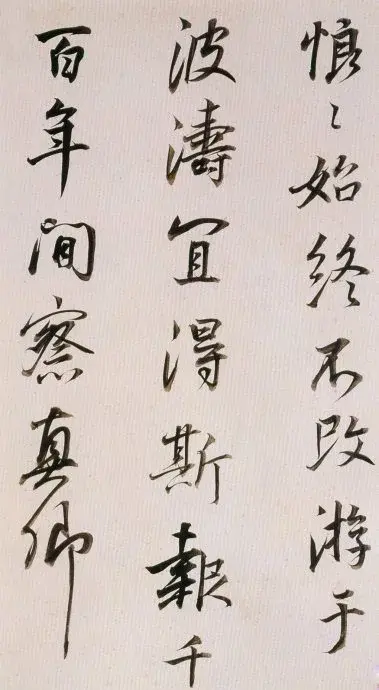 恨〻始終不改游于
波濤宜得斯報千
百年間察真卿